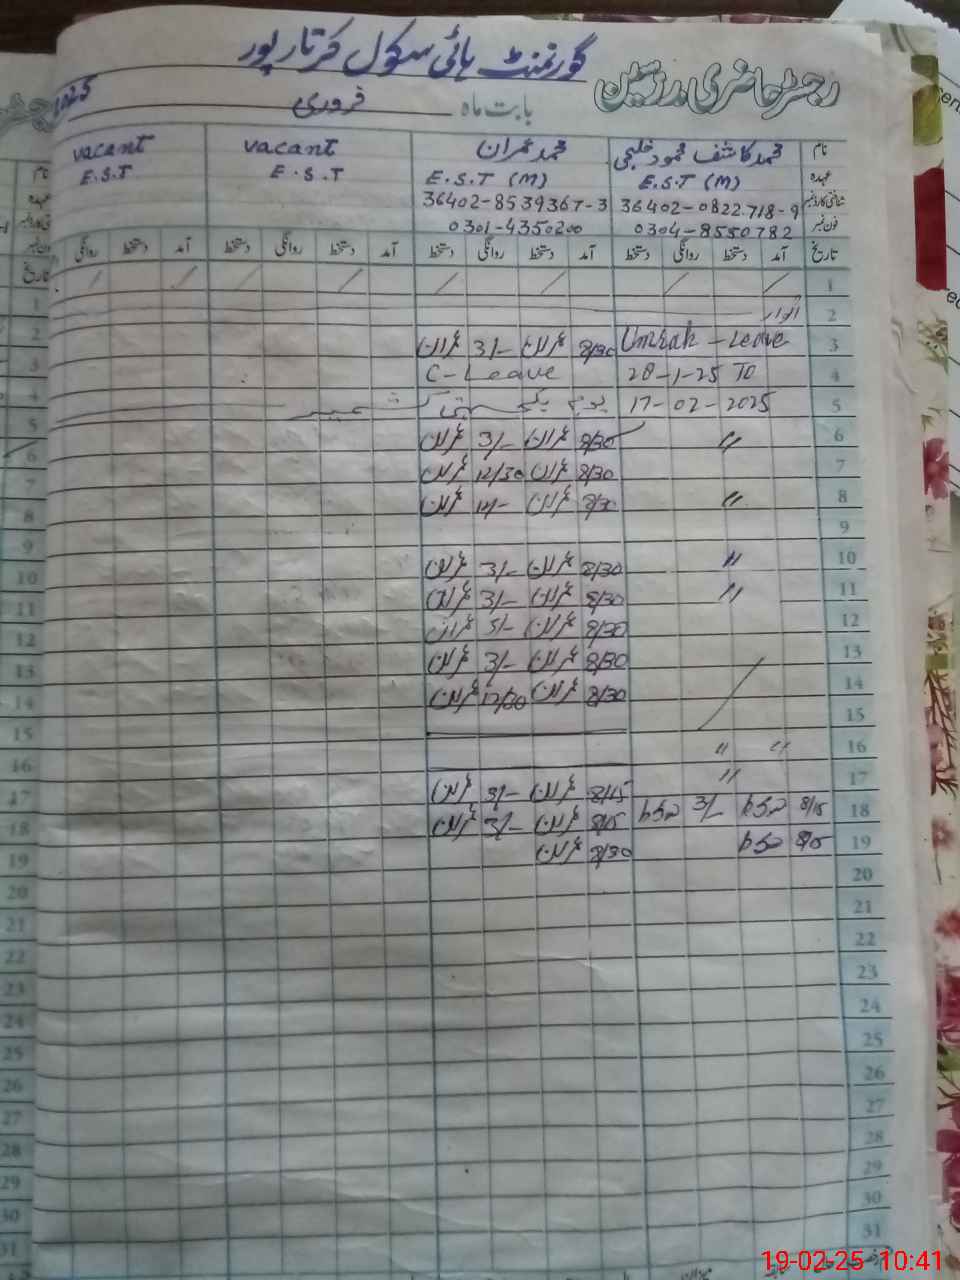 گورنمنٹ ہائی سکول کرتارپور
رجسٹر حاضری مدرسین
بابت ماہ فروری
نام محمد کاشف محمود خلجی محمد عمران vacant vacant
عہدہ E.S.T (M) E.S.T (M) E.S.T E.S.T
شناختی کارڈ نمبر 36402-0822718-9 36402-8539367-3
فون نمبر 0304-8550782 0301-4350200
تاریخ آمد دستخط روانگی دستخط آمد دستخط روانگی دستخط آمد دستخط روانگی دستخط آمد دستخط روانگی
1
2 اتوار
3 Umrah - Leave 8/30 عمران 3/- عمران
4 28-1-25 To C-Leave
5 17-02-2025 یوم یکجہتی کشمیر
6 " 8/30 عمران 3/- عمران
7 8/30 عمران 12/30 عمران
8 " 8/30 عمران 12/- عمران
9
10 " 8/30 عمران 3/- عمران
11 " 8/30 عمران 3/- عمران
12 8/30 عمران 3/- عمران
13 8/30 عمران 3/- عمران
14 8/30 عمران 12/30 عمران
15
16 " "
17 " 8/15 عمران 3/- عمران
18 8/15 3/- 8/15 عمران 3/- عمران
19 8/15 8/30 عمران
20
21
22
23
24
25
26
27
28
29
30
31
19-02-25 10:41